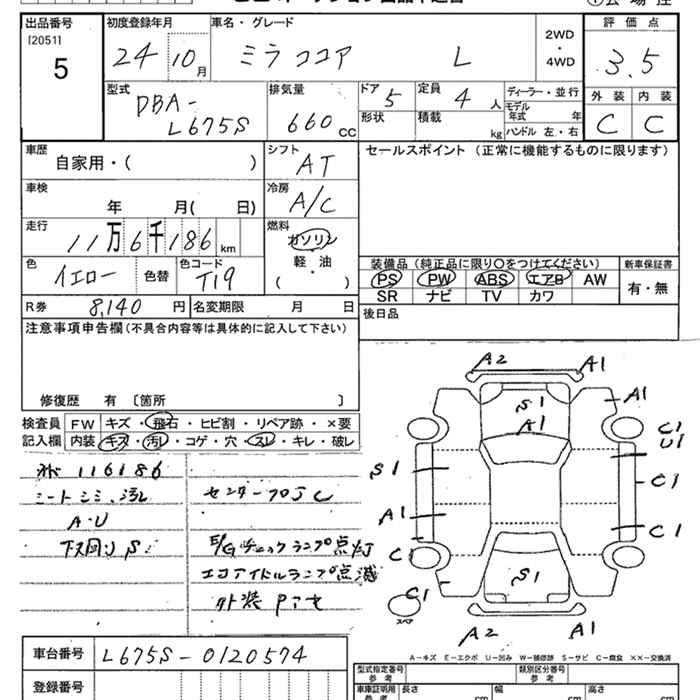 出品番号 初度登録年月 車名・グレード 評価点
[2051]
5 24 10月 ミラココア L 2WD・4WD 3.5
型式 排気量 ドア 定員 ディーラー・並行 外装 内装
DBA-L675S 660CC 5 4人 モデル年式 年 C C
形状 積載 kg ハンドル 左・右
車歴 シフト セールスポイント (正常に機能するものに限ります)
自家用・( ) AT
車検 冷房
年 月( 日) A/C
走行 燃料
11万6千186km ガソリン
軽・油
( )
色 色替 色コード 装備品 (純正品に限り○をつけてください) 新車保証書
イエロー T19 PS PW ABS エアB AW 有・無
SR ナビ TV カワ
R券 8,140円 名変期限 月 日 後日品
注意事項申告欄(不具合内容等は具体的に記入して下さい)
修復歴 有 〔箇所 〕
検査員 FW キズ・飛石・ヒビ割・リペア跡・×要
記入欄 内装 キズ・汚レ・コゲ・穴・スレ・キレ・破レ
116186
シートシミ、汚レ センター
A・U
下回り S E/Gチェックランプ点灯
エコアイドルランプ点滅
外装
A2 A1
S1 A1
A1 C1
U1
S1 C1
A1 C1
C1 S1 C1
スペア
A2 A1
A-キズ E-エクボ U-凹み W-補修跡 S-サビ C-腐食 ××-交換済
車台番号 L675S-0120574
型式指定番号 参考 類別区分番号 参考
登録番号 車庫証明用 参考 長さ cm 幅 cm 高さ cm